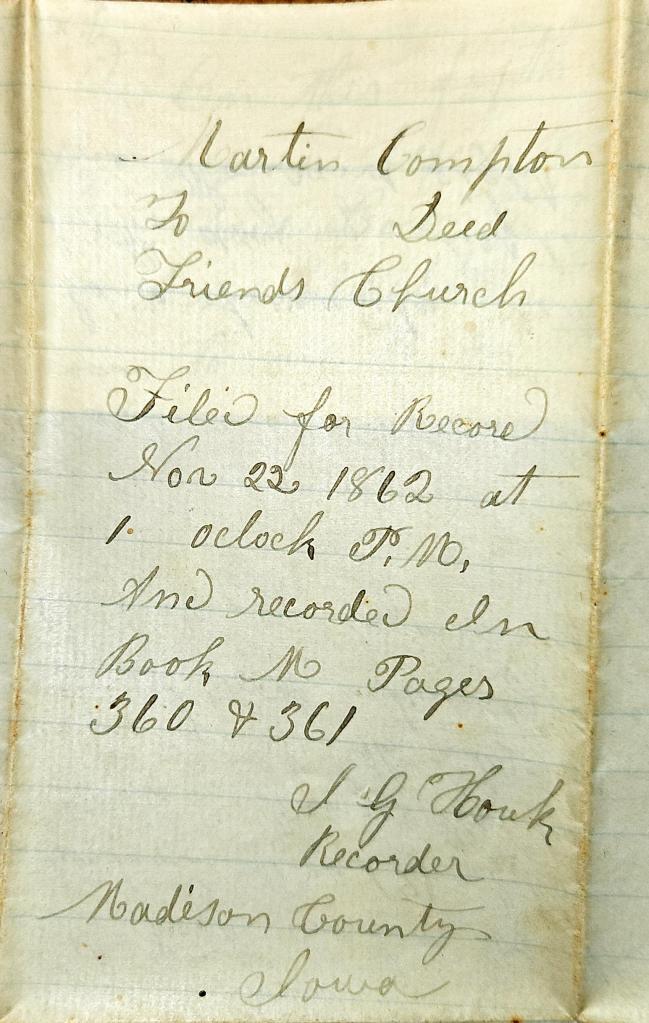 Martin Compton
To Deed
Friends Church
Filed for Record
Nov 22 1862 at
1 oclock P. M,
And recorded In
Book M Pages
360 & 361
J G Houk
Recorder
Madison County
Iowa